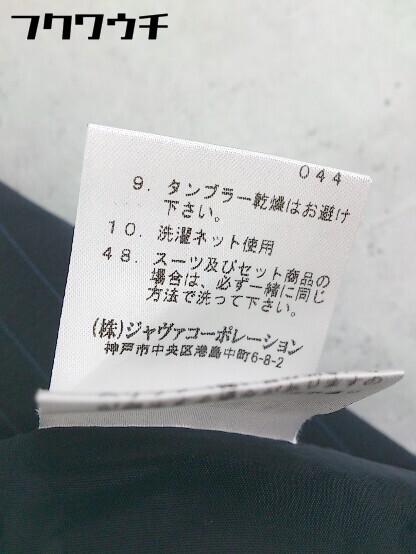 フクワウチ
044
9. タンブラー乾燥はお避け
下さい。
10. 洗濯ネット使用
48. スーツ及びセット商品の
場合は、必ず一緒に同じ
方法で洗って下さい。
(株)ジャヴァコーポレーション
神戸市中央区港島中町6-8-2